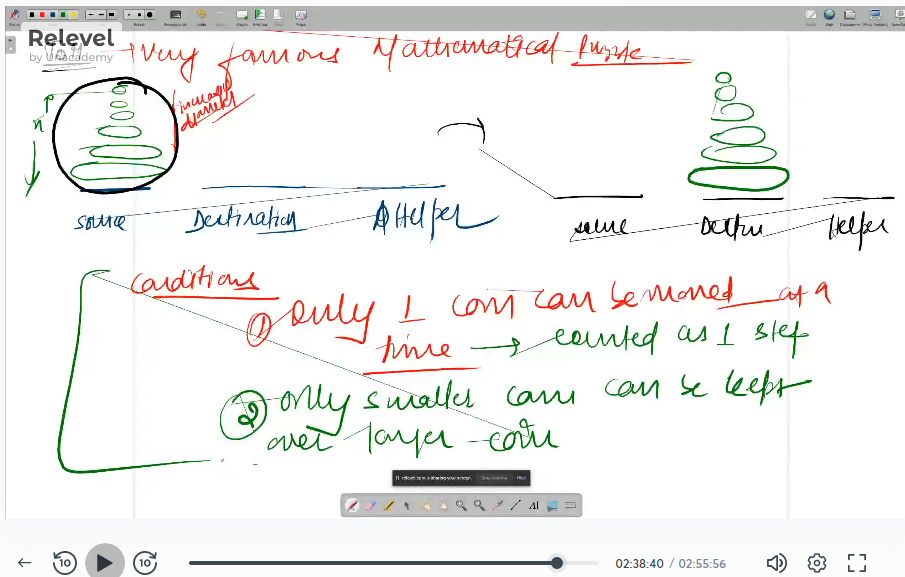 Relevel
by Unacademy
TOH → Very famous Mathematical Puzzle
n
increasing
diameter
source Destination Helper
source Destin Helper
Conditions
① Only 1 coin can be moved at a
time → counted as 1 step
② only smaller coin can be kept
over larger coin
relevel.com is sharing your screen. Stop sharing Hide
AI
10 10 02:38:40 / 02:55:56